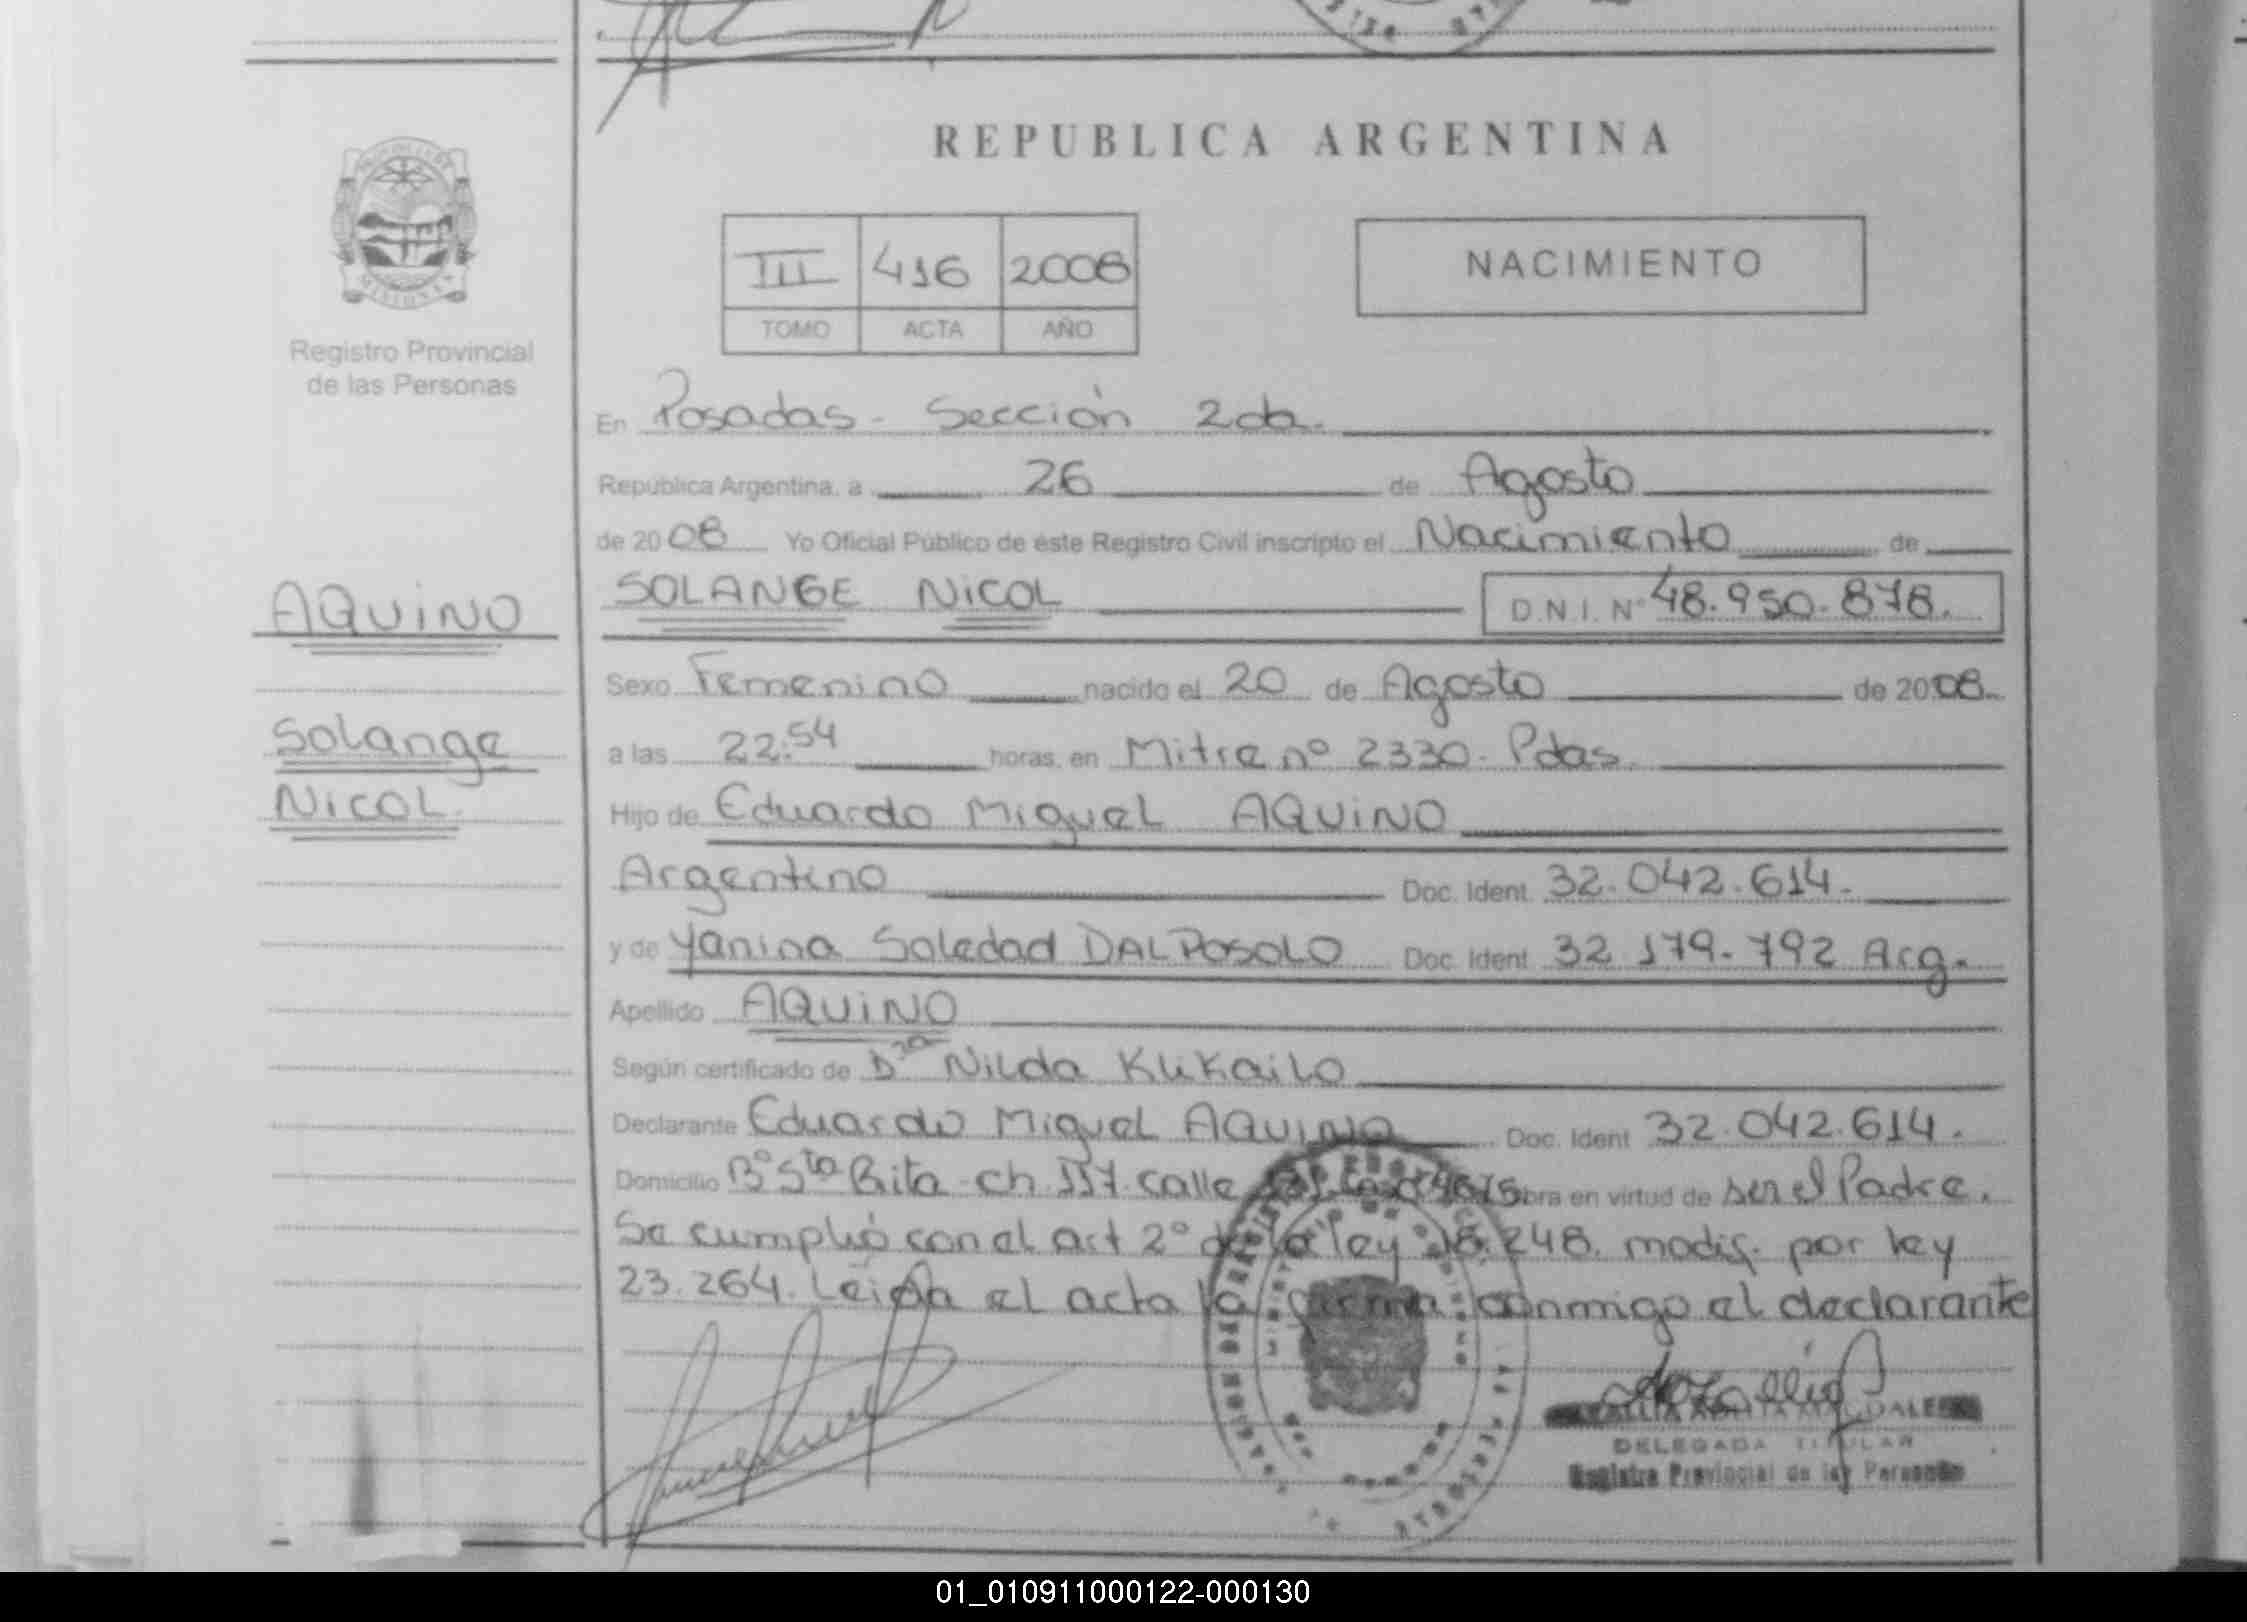 REPUBLICA ARGENTINA
III 416 2008
TOMO ACTA AÑO
NACIMIENTO
MISIONES
Registro Provincial
de las Personas
AQUINO
Solange
NICOL
En Posadas - Sección 2da.
República Argentina, a 26 de Agosto
de 2008 Yo Oficial Público de éste Registro Civil inscripto el Nacimiento de
SOLANGE NICOL D.N.I. Nº 48.950.878.
Sexo Femenino nacido el 20 de Agosto de 2008.
a las 22:54 horas, en Mitre nº 2330. Pdas.
Hijo de Eduardo Miguel AQUINO
Argentino Doc. Ident. 32.042.614.
y de Yanina Soledad DALPOSOLO Doc. Ident. 32.179.792 Arg.
Apellido AQUINO
Según certificado de Dra Nilda Klikailo
Declarante Eduardo Miguel AQUINO Doc. Ident 32.042.614.
Domicilio Bº Sta Rita - ch. 157. calle obra en virtud de ser el Padre.
Se cumplió con el art 2º de la ley 18.248. modif. por ley
23.264. Leída el acta la firma conmigo el declarante
DELEGADA TITULAR
Registro Provincial de las Personas
01_010911000122-000130